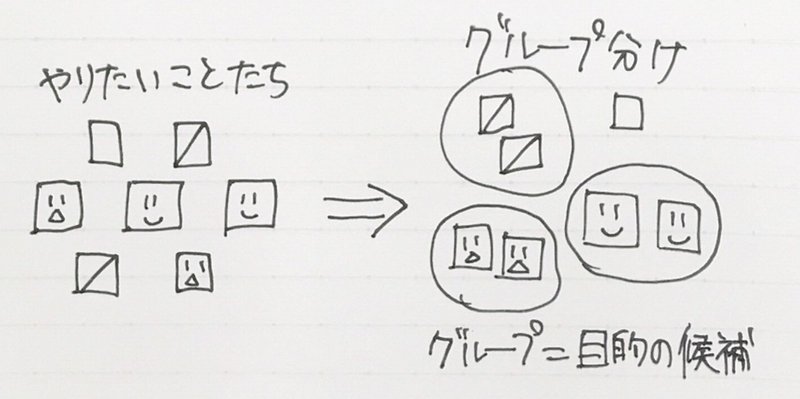 やりたいことたち
グループ分け
グループ=目的の候補